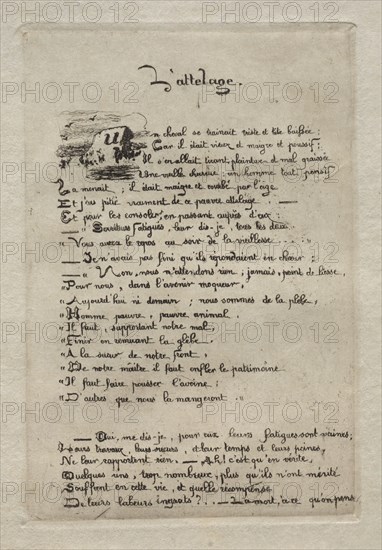 L'attelage.
Un cheval se trainait triste et tête baissée :
Car il était vieux et maigre et poussif ;
Il s'en allait tirant, plaintive et mal graissée
Une vieille charrue ; un homme tout pensif
La menait ; il était maigre et courbé par l'âge
Et j'eus pitié vraiment de ce pauvre attelage. —
Et pour les consoler, en passant auprès d'eux :
— " Serviteurs fatigués, leur dis-je, tous les deux
" Vous aurez le repos au soir de la vieillesse . . . . "
— Je n'avais pas fini qu'ils répondaient en chœur :
— " Non, nous n'attendons rien ; jamais, point de liesse,
" Pour nous, dans l'avenir moqueur,
" Aujourd'hui ni demain ; nous sommes de la plèbe,
" Homme pauvre, pauvre animal.
" Il faut, supportant notre mal,
" Finir en remuant la glèbe.
" A la sueur de notre front,
" De notre maître il faut enfler le patrimoine
" Il faut faire pousser l'avoine :
" D'autres que nous la mangeront "
— Oui, me dis-je, pour eux leurs fatigues sont vaines ;
Leurs travaux, leurs sueurs, et leur temps et leurs peines,
Ne leur rapportent rien. — Ah ! c'est qu'en vérité,
Quelques uns, trop nombreux, plus qu'ils n'ont mérité
Souffrent en cette vie, et quelle récompense
De leurs labeurs ingrats ? . . — La mort, à ce qu'on pense
PHOTO12